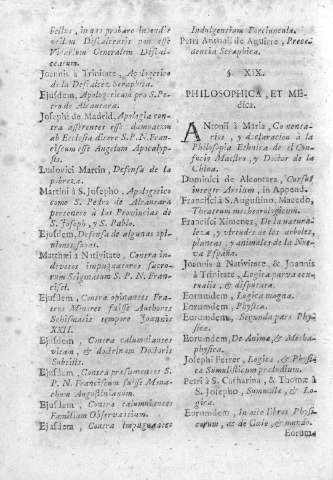 belles, in qua probare intendit
nullum Discalceatis non esse
Vicarium Generalem Discal-
ceatum.
Joannis à Trinitate, Apologetico
de la Descalcez Seraphica.
Ejusdem, Apologeticum pro S. Pe-
tro de Alcantara.
Josephi de Madrid, Apologia con-
tra asserentes esse damnatum
ab Ecclesia dicere S. P. N. Fran-
ciscum esse Angelum Apocalyp-
sis.
Ludovici Martin, Defensa de la
pobreza.
Martini à S. Josepho, Apologetico
como S. Pedro de Alcantara
pertenece à las Provincias de
S. Joseph, y S. Pablo.
Ejusdem, Defensa de algunas opi-
niones suyas.
Matthæi à Nativitate, Contra in-
devotos impugnatores sacro-
rum Stigmatum S. P. N. Fran-
cisci.
Ejusdem, Contra opinantes Fra-
tres Minores fuisse Authores
Schismatis tempore Joannis
XXII.
Ejusdem, Contra calumniantes
vitam, & doctrinam Doctoris
Subtilis.
Ejusdem, Contra præsumentes S.
P. N. Franciscum fuisse Mona-
chum Augustinianum.
Ejusdem, Contra calumniantes
Familiam Observantium.
Ejusdem, Contra impugnantes
Indulgentiam Porciuncula.
Petri Antonii de Aguirre, Prece-
dencia Seraphica.
§. XIX.
PHILOSOPHICA, ET ME-
dica.
Antonii à Maria, Comenta-
rios, y declaracion à la
Philosophia Ethnica de el Con-
fucio Maestro, y Doctor de la
China.
Dominici de Alcantara, Cursus
integer Artium, in Append.
Francisci à S. Augustino, Macedo,
Theatrum metheorologicum.
Francisci Ximenez, De la natura-
leza, y virtudes de los arboles,
plantas, y animales de la Nue-
va España.
Joannis à Nativitate, & Joannis
à Trinitate, Logica parva con-
ceptualis, & disputata.
Eorumdem, Logica magna.
Eorumdem, Physica.
Eorumdem, Secunda pars Phy-
sicæ.
Eorumdem, De Anima, & Metha-
physica.
Josephi Ferrer, Logica, & Physica
Summulisticum præludium.
Petri à S. Catharina, & Thomæ à
S. Josepho, Summulæ, & Lo-
gica.
Eorumdem, In octo libros Physi-
corum, ac de Cœlo, & mundo.
Eorum-